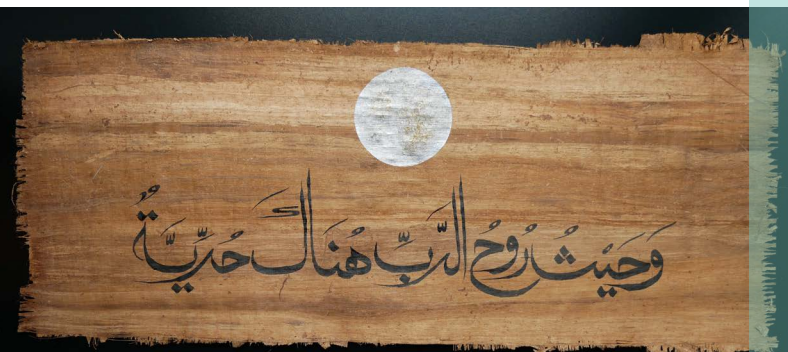 وَحَيْثُ رُوحُ الرَّبِّ هُنَاكَ حُرِّيَّةٌ